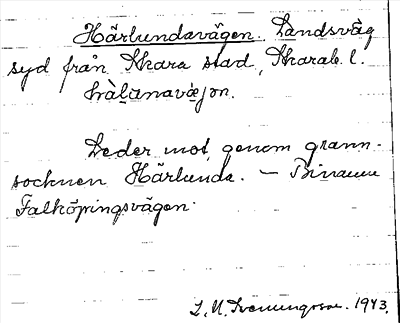 Härlundavägen. Landsväg
syd från Skara stad, Skarab. l.
hälanavæjən.
Leder mot, genom grann-
socknen Härlunda. — Binamn
Falköpingsvägen.
L. M. Svenungsson. 1943.